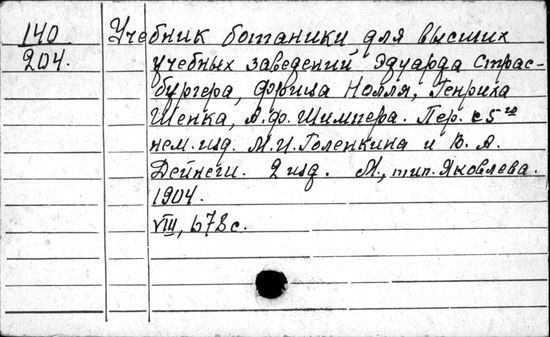 140 Учебник ботаники для высших
204. учебных заведений Эдуарда Страс-
бургера, Фрица Нолля, Генриха
Шенка, А.Ф. Шимпера. Пер. с 5го
нем. изд. М.И. Голенкина и В. А.
Дейнеги. 2 изд. М., тип. Яковлева.
1904.
VIII, 678 с.